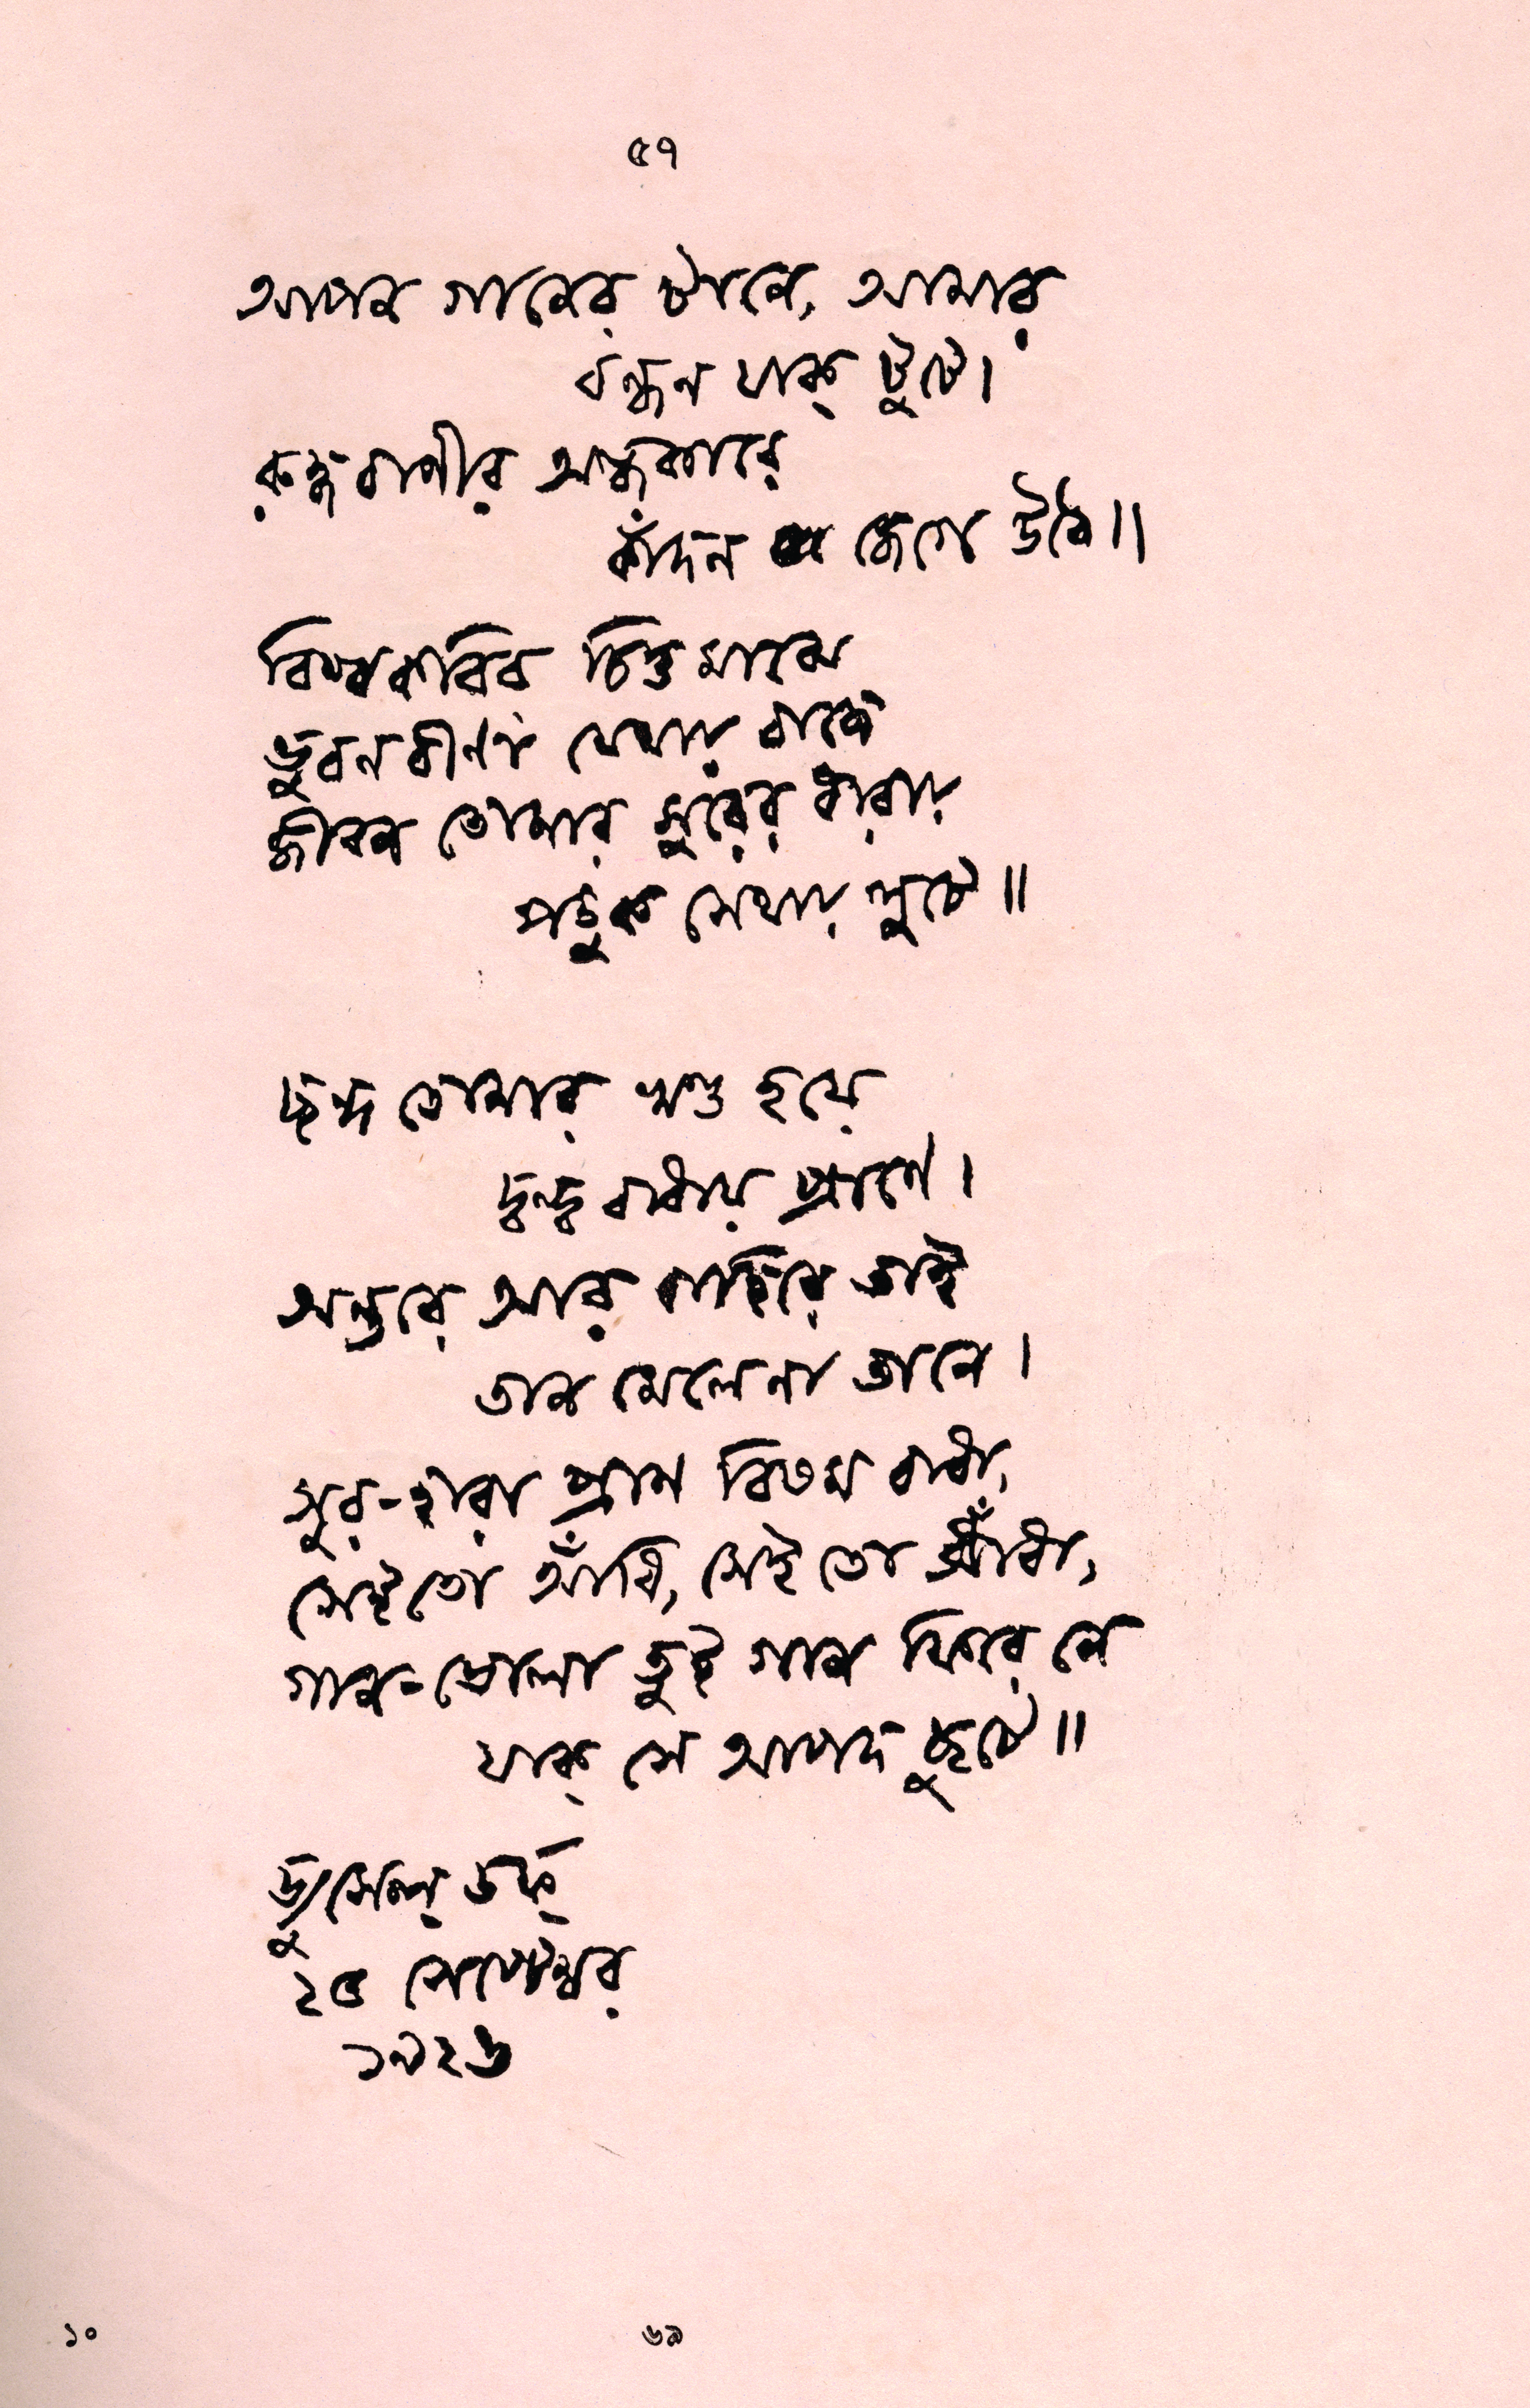 ৫৭
আপন গানের টানে, আমার
বন্ধন যাক্ টুটে।
রুদ্ধবাণীর অন্ধকারে
কাঁদন জেগে উঠে॥
বিশ্বকবির চিত্তমাঝে
ভুবনবীণা যেথায় বাজে
জীবন তোমার সুরের ধারায়
পড়ুক সেথায় লুটে॥
ছন্দ তোমার ভগ্ন হয়ে
দ্বন্দ্ব বাধায় প্রাণে।
অন্তরে আর বাহিরে তাই
তান মেলেনা তানে।
সুর-হারা প্রাণ বিষম বাধা,
সেইতো আঁধি, সেইতো ধাঁধা,
গান-ভোলা তুই গান ফিরে নে
যাক্ সে আপদ ছুটে॥
ড্যুসেল্ ডর্ফ্
২৫ সেপ্টেম্বর
১৯২৬
১০
৬৯